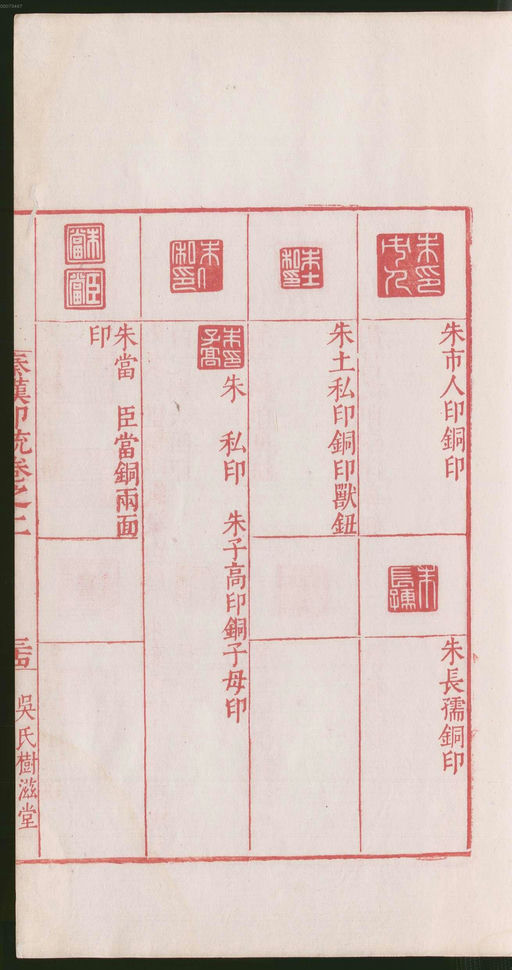 朱市人印銅印
朱長孺銅印
朱土私印銅印獸鈕
朱 私印 朱子高印銅子母印
朱當 臣當銅兩面
印
秦漢印統卷之二
吳氏樹滋堂
00073447